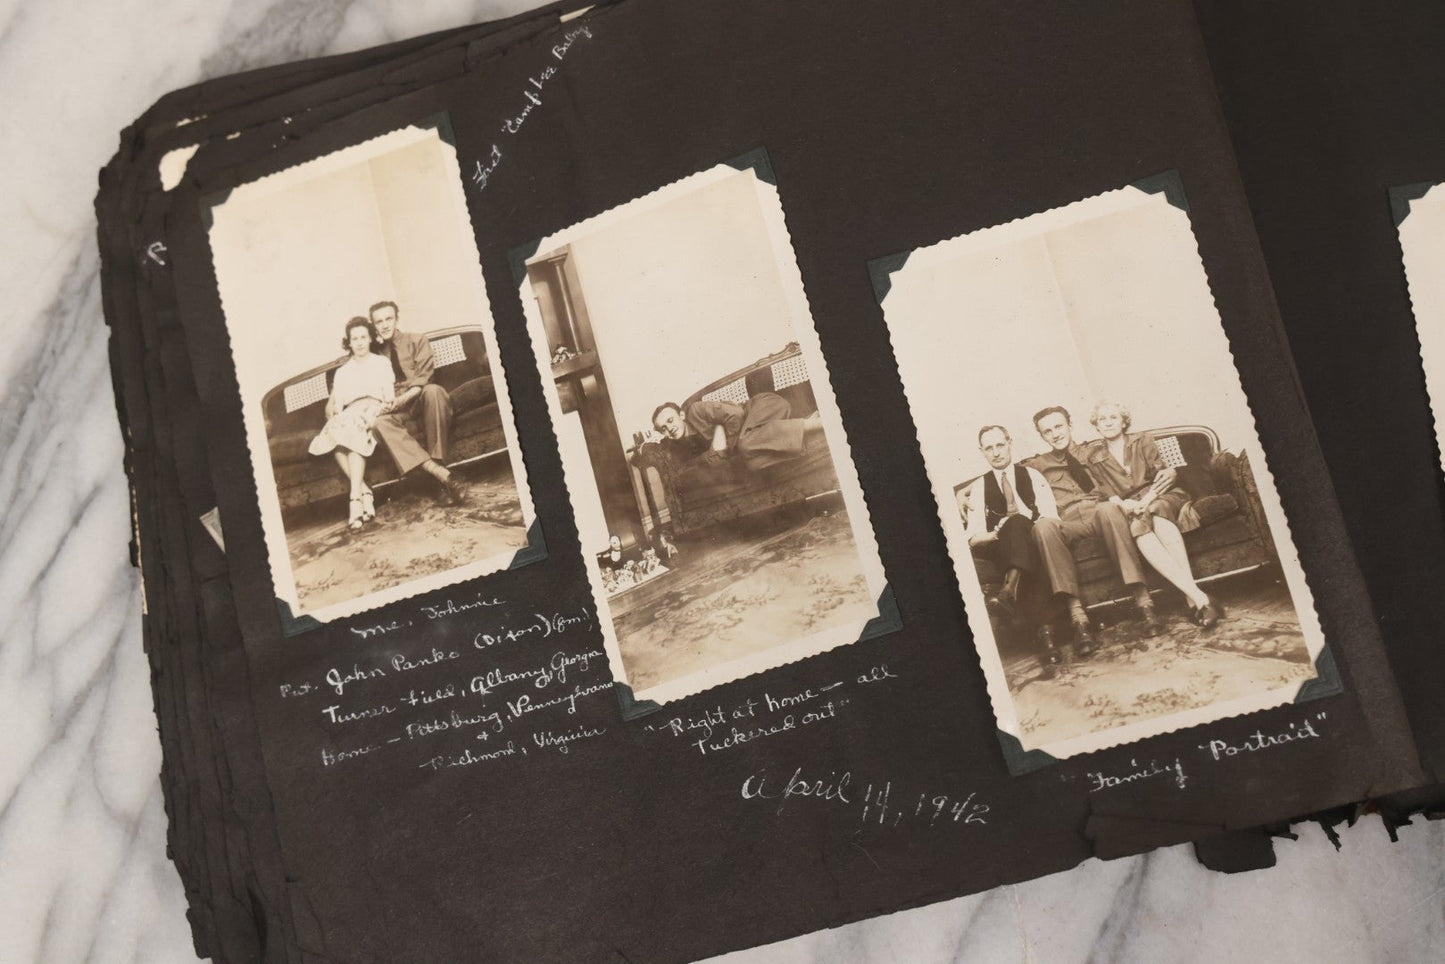 First "Camp Lee Baby"
Me, Johnnie
Pvt. John Panko (Dixon)
Turner Field, Albany, Georgia
Home — Pittsburg, Pennsylvania
+
Richmond, Virginia
"Right at home — all
Tuckered out"
"Family Portrait"
April 14, 1942